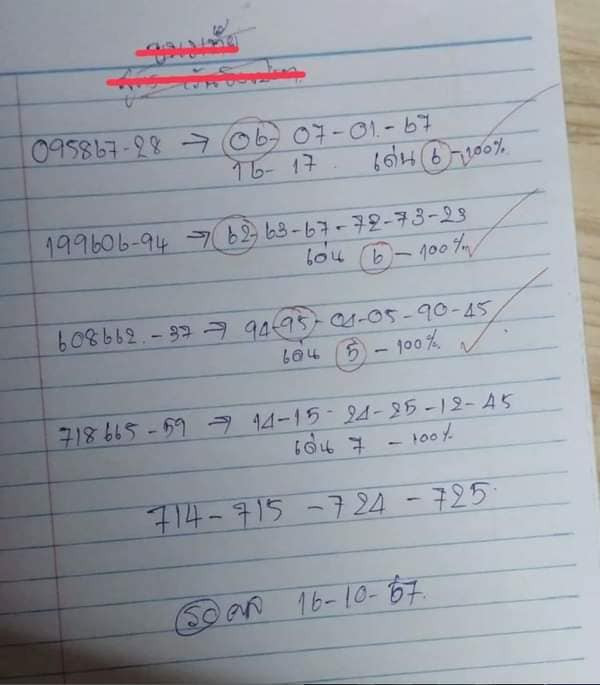 095867-28 → 06- 07-01-67
16-17. เด่น 6-100%
199606-94 → 62-63-67-72-73-23
เด่น 6-100%
608662.-37 → 94-95-04-05-90-45
เด่น 5-100%
718665-59 → 14-15-24-25-12-45
เด่น 7-100%
714-715-724-725.
รอผล 16-10-67.